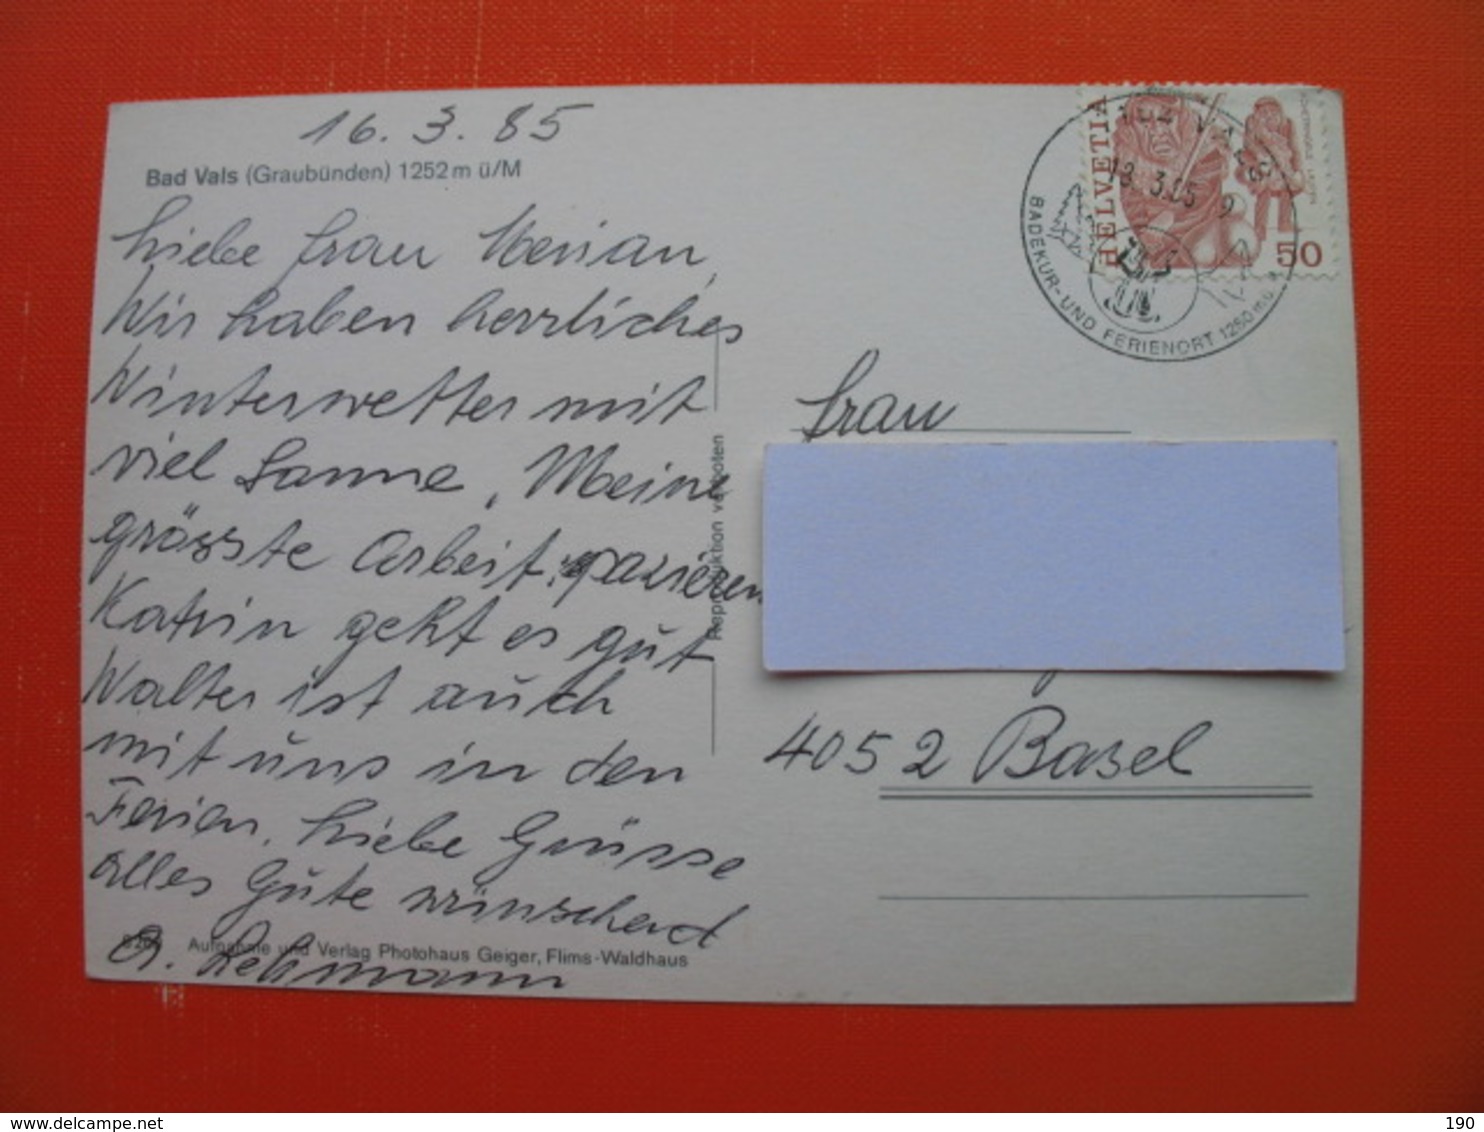 16. 3. 85
Bad Vals (Graubünden) 1252 m ü/M
Liebe Frau Merian,
Wir haben herrliches
Winterwetter mit
viel Sonne, Meine
grösste Arbeit, spazieren
Katrin geht es gut
Walter ist auch
mit uns in den
Ferien. Liebe Grüsse
alles Gute wünschend
Lehmann
Aufnahme und Verlag Photohaus Geiger, Flims-Waldhaus
Reproduktion verboten
HELVETIA
50
VALS
3.85 9
BADEKUR- UND FERIENORT 1250 m ü. M.
Frau
4052 Basel
delcampe.net
190